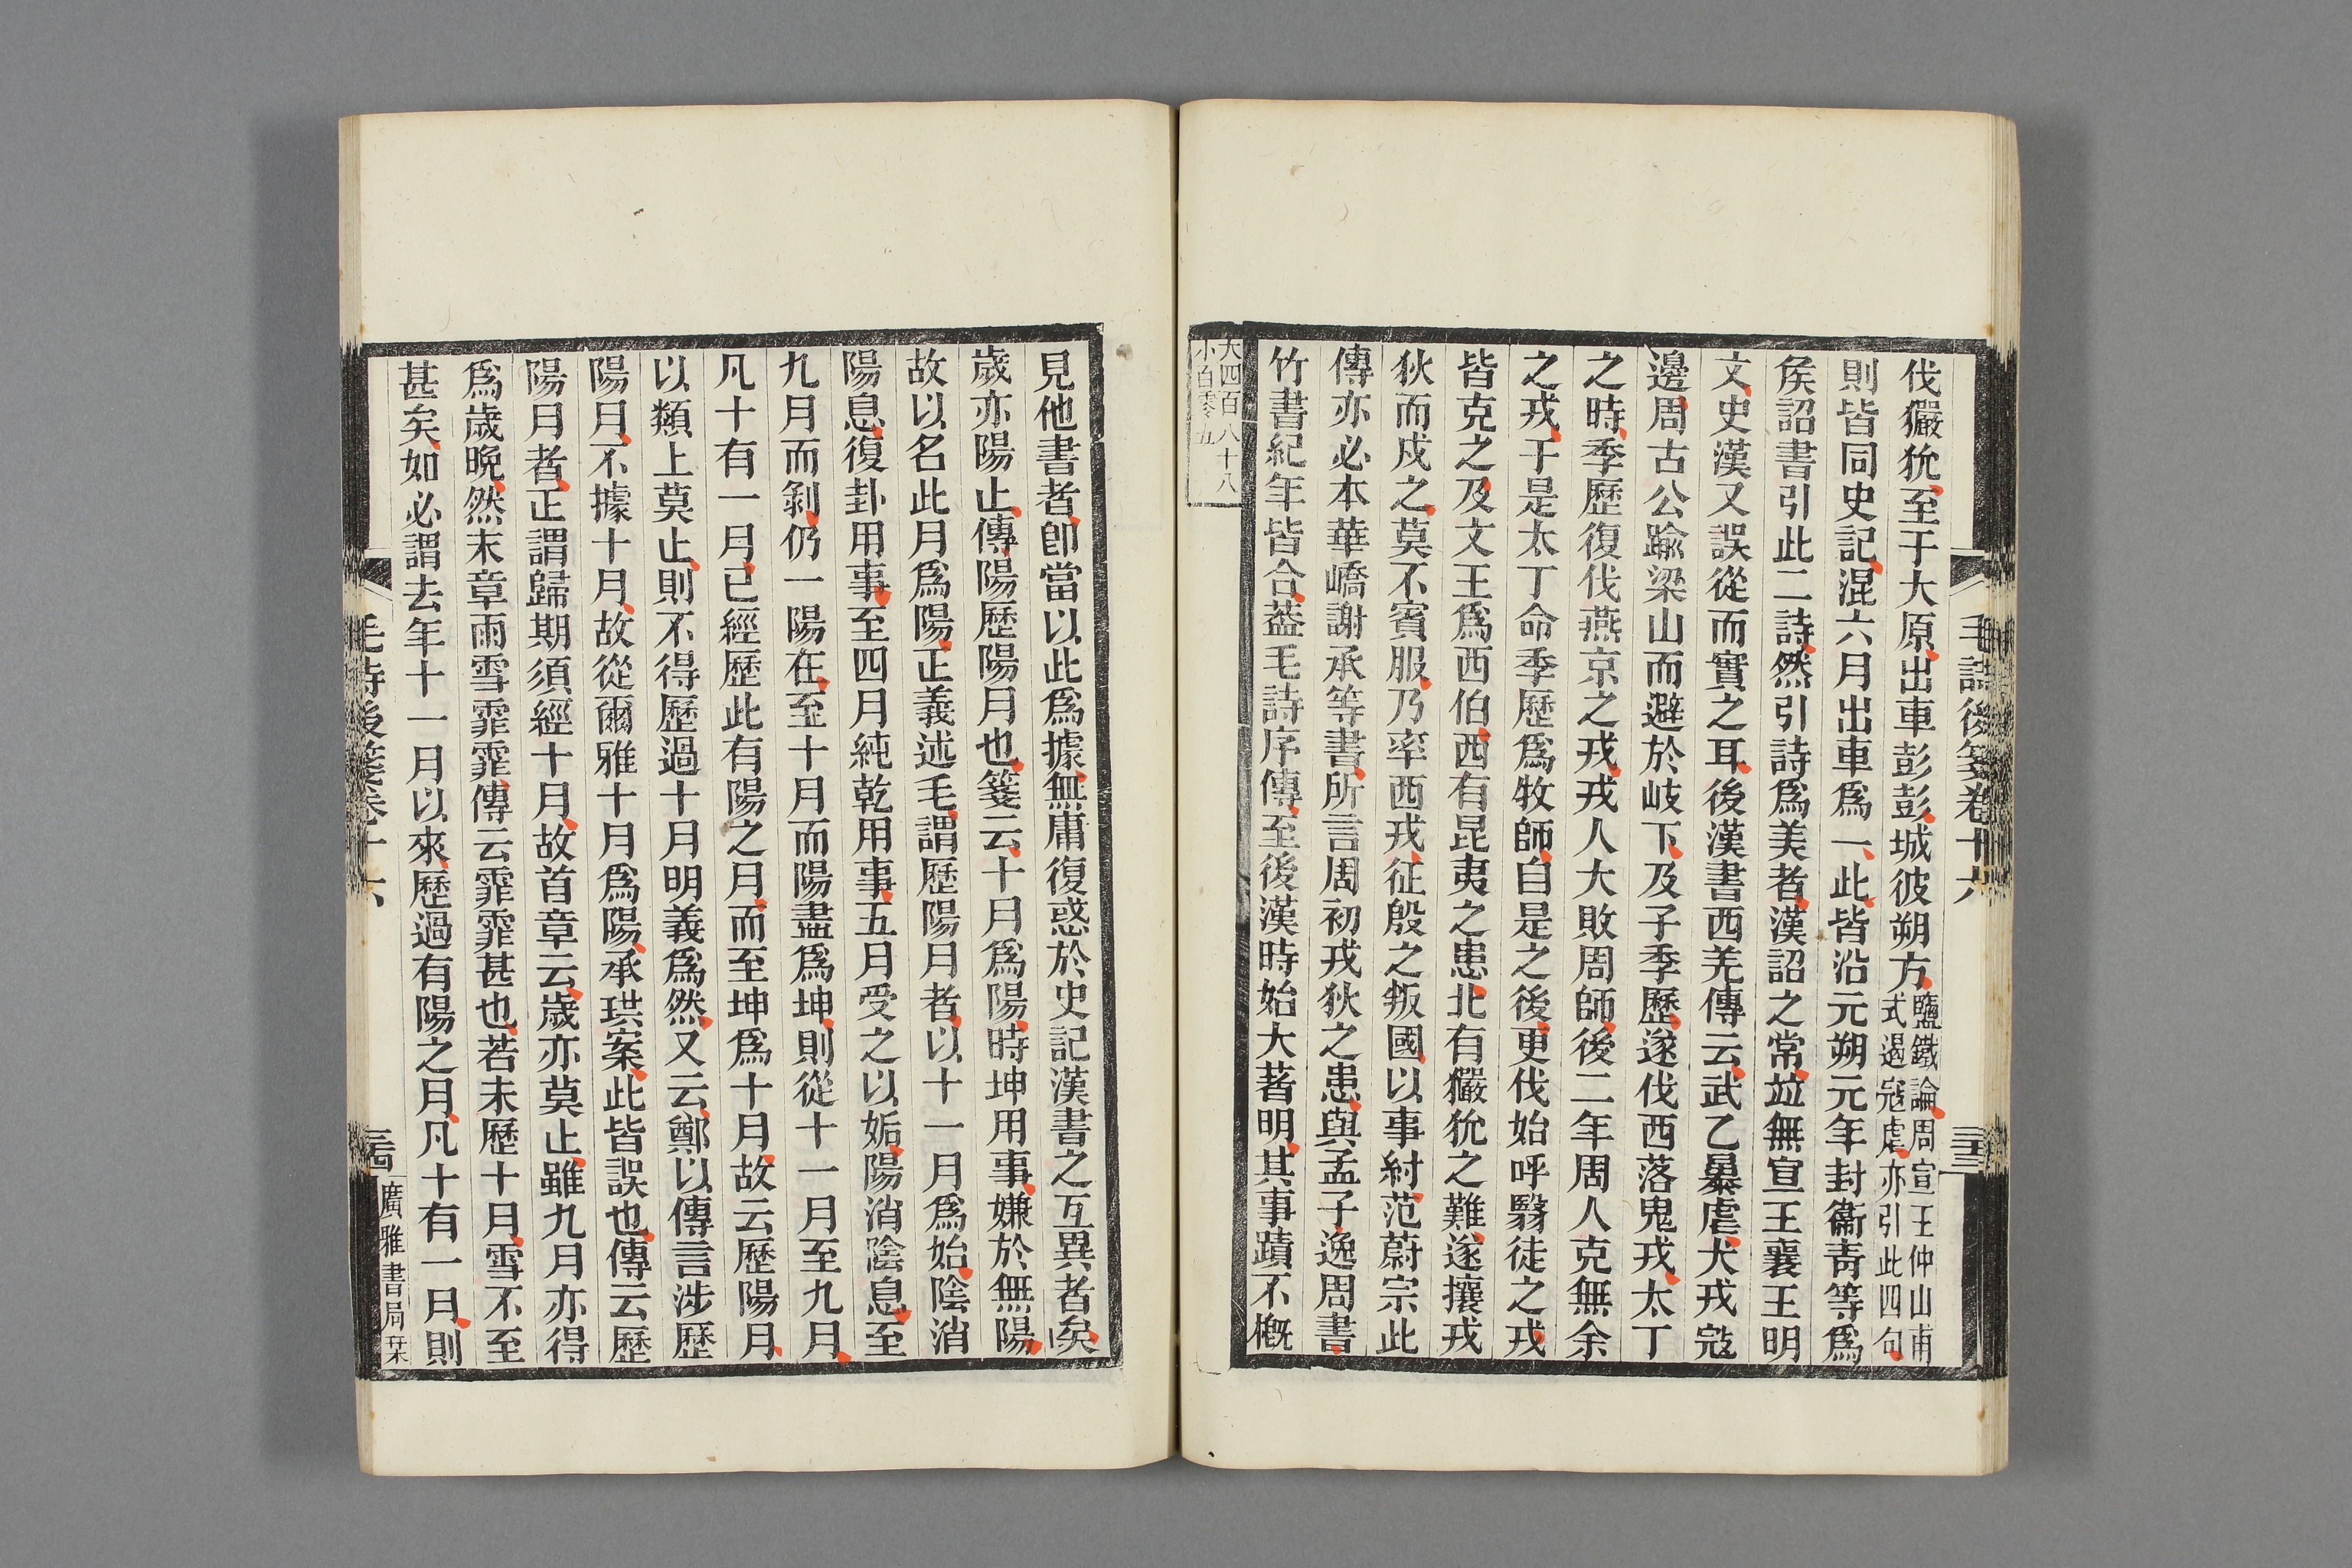 毛詩後箋卷十六
伐玁狁至于大原出車彭彭城彼朔方鹽鐵論周宣王仲山甫式遏寇虐亦引此四句
則皆同史記混六月出車為一此皆沿元朔元年封衞青等爲
矦詔書引此二詩然引詩爲美者漢詔之常竝無宣王襄王明
文史漢又誤從而實之耳後漢書西羌傳云武乙暴虐犬戎寇
邊周古公踰梁山而避於岐下及子季歷遂伐西落鬼戎太丁
之時季歷復伐燕京之戎戎人大敗周師後二年周人克無余
之戎于是太丁命季歷爲牧師自是之後更伐始呼翳徒之戎
皆克之及文王爲西伯西有昆夷之患北有玁狁之難遂攘戎
狄而戍之莫不賓服乃率西戎征殷之叛國以事紂范蔚宗此
傳亦必本華嶠謝承等書所言周初戎狄之患與孟子逸周書
竹書紀年皆合葢毛詩序傳至後漢時始大著明其事蹟不槪
大四百八十八
小百零五
見他書者卽當以此爲據無庸復惑於史記漢書之互異者矣
歲亦陽止傳陽歷陽月也箋云十月爲陽時坤用事嫌於無陽
故以名此月爲陽正義述毛謂歷陽月者以十一月爲始陰消
陽息復卦用事至四月純乾用事五月受之以姤陽消陰息至
九月而剝仍一陽在至十月而陽盡爲坤則從十一月至九月
凡十有一月已經歷此有陽之月而至坤爲十月故云歷陽月
以類上莫止則不得歷過十月明義爲然又云鄭以傳言涉歷
陽月不據十月故從爾雅十月爲陽承珙案此皆誤也傳云歷
陽月者正謂歸期須經十月故首章云歲亦莫止雖九月亦得
爲歲晩然末章雨雪霏霏傳云霏霏甚也若未歷十月雪不至
甚矣如必謂去年十一月以來歷過有陽之月凡十有一月則
毛詩後箋卷十六
廣雅書局栞